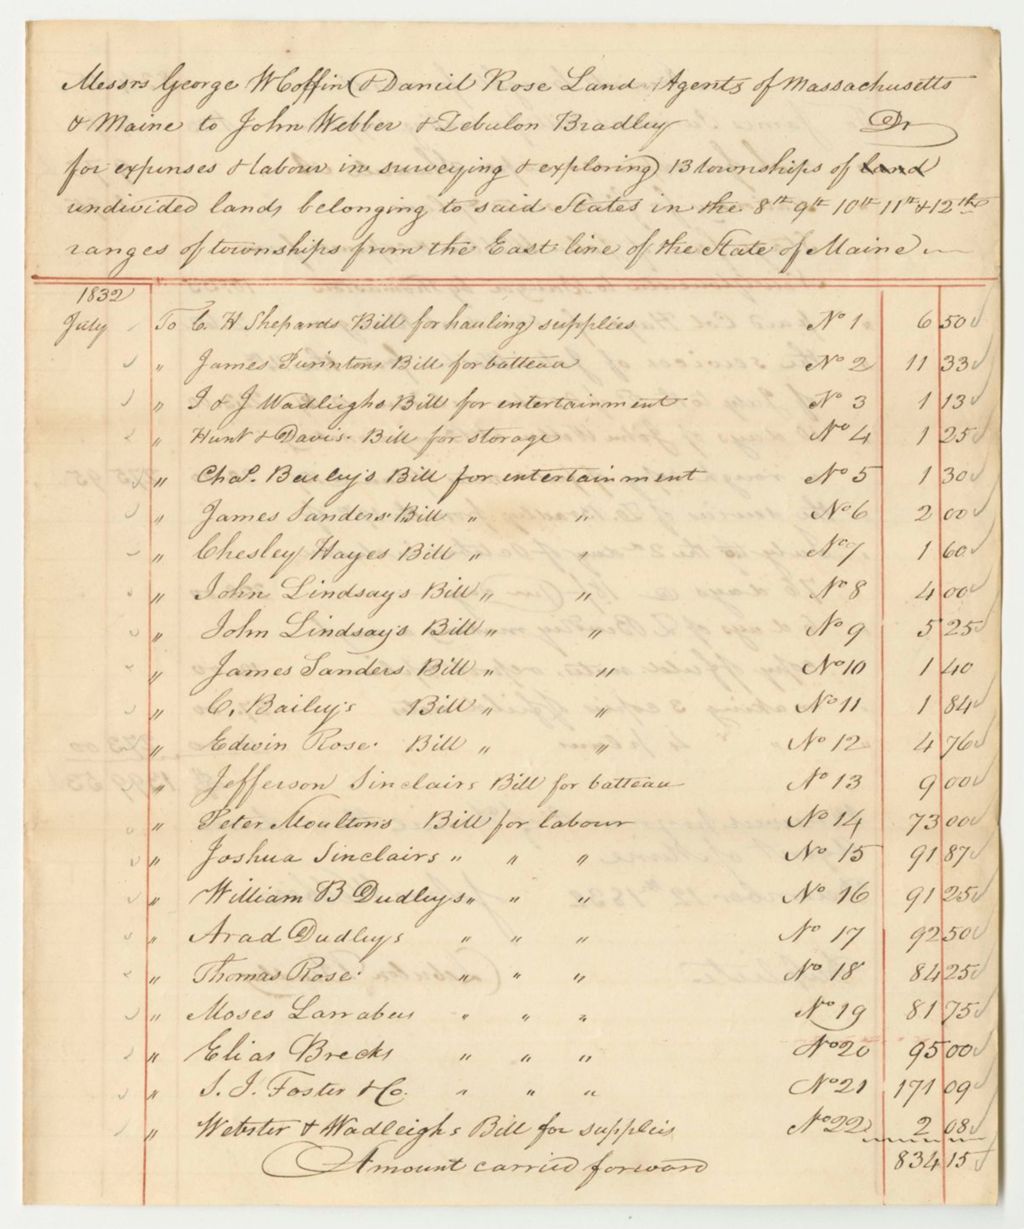 Messrs George W Coffin & Daniel Rose Land Agents of Massachusetts
& Maine to John Webber & Zebulon Bradley Dr
for expenses & labour in surveying & exploring 13 townships of land
undivided lands belonging to said States in the 8th 9th 10th 11th & 12th
ranges of townships from the East line of the State of Maine
1832
July To C. H Shepards Bill for hauling supplies No 1 6 50
" James Purintons Bill for batteau No 2 11 33
" I & J Wadleighs Bill for entertainment No 3 1 13
" Hunt & Davis Bill for storage No 4 1 25
" Chas. Bailey's Bill for entertainment No 5 1 30
" James Sanders Bill " " No 6 2 00
" Chesley Hayes Bill " " No 7 1 60
" John Lindsay's Bill " " No 8 4 00
" John Lindsay's Bill " " No 9 5 25
" James Sanders Bill " " No 10 1 40
" C. Bailey's Bill " " No 11 1 84
" Edwin Rose Bill " " No 12 4 76
" Jefferson Sinclairs Bill for batteau No 13 9 00
" Peter Moulton's Bill for labour No 14 73 00
" Joshua Sinclairs " " " No 15 91 87
" William B Dudleys " " " No 16 91 25
" Arad Dudleys " " " No 17 92 50
" Thomas Rose " " " No 18 84 25
" Moses Larrabees " " " No 19 81 75
" Elias Brecks " " " No 20 95 00
" S. J. Foster & Co. " " " No 21 171 09
" Webster & Wadleighs Bill for supplies No 22 2 08
Amount carried forward 834 15